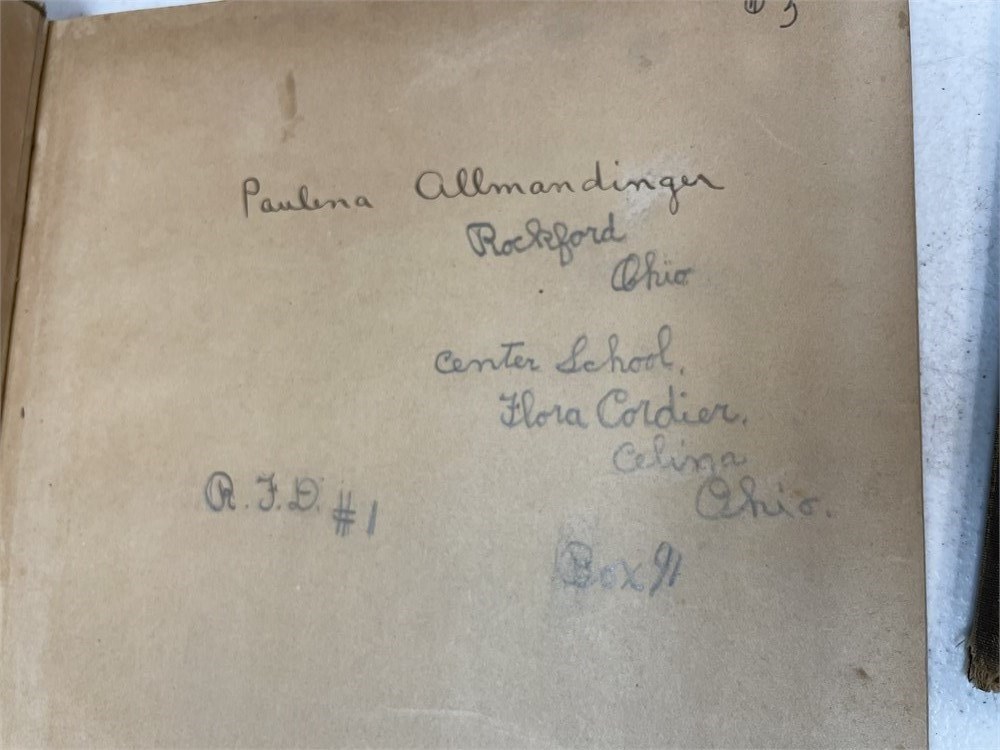 Paulena Allmandinger
Rockford
Ohio
Center School.
Flora Cordier.
Celina
Ohio.
R.F.D. #1
Box 91